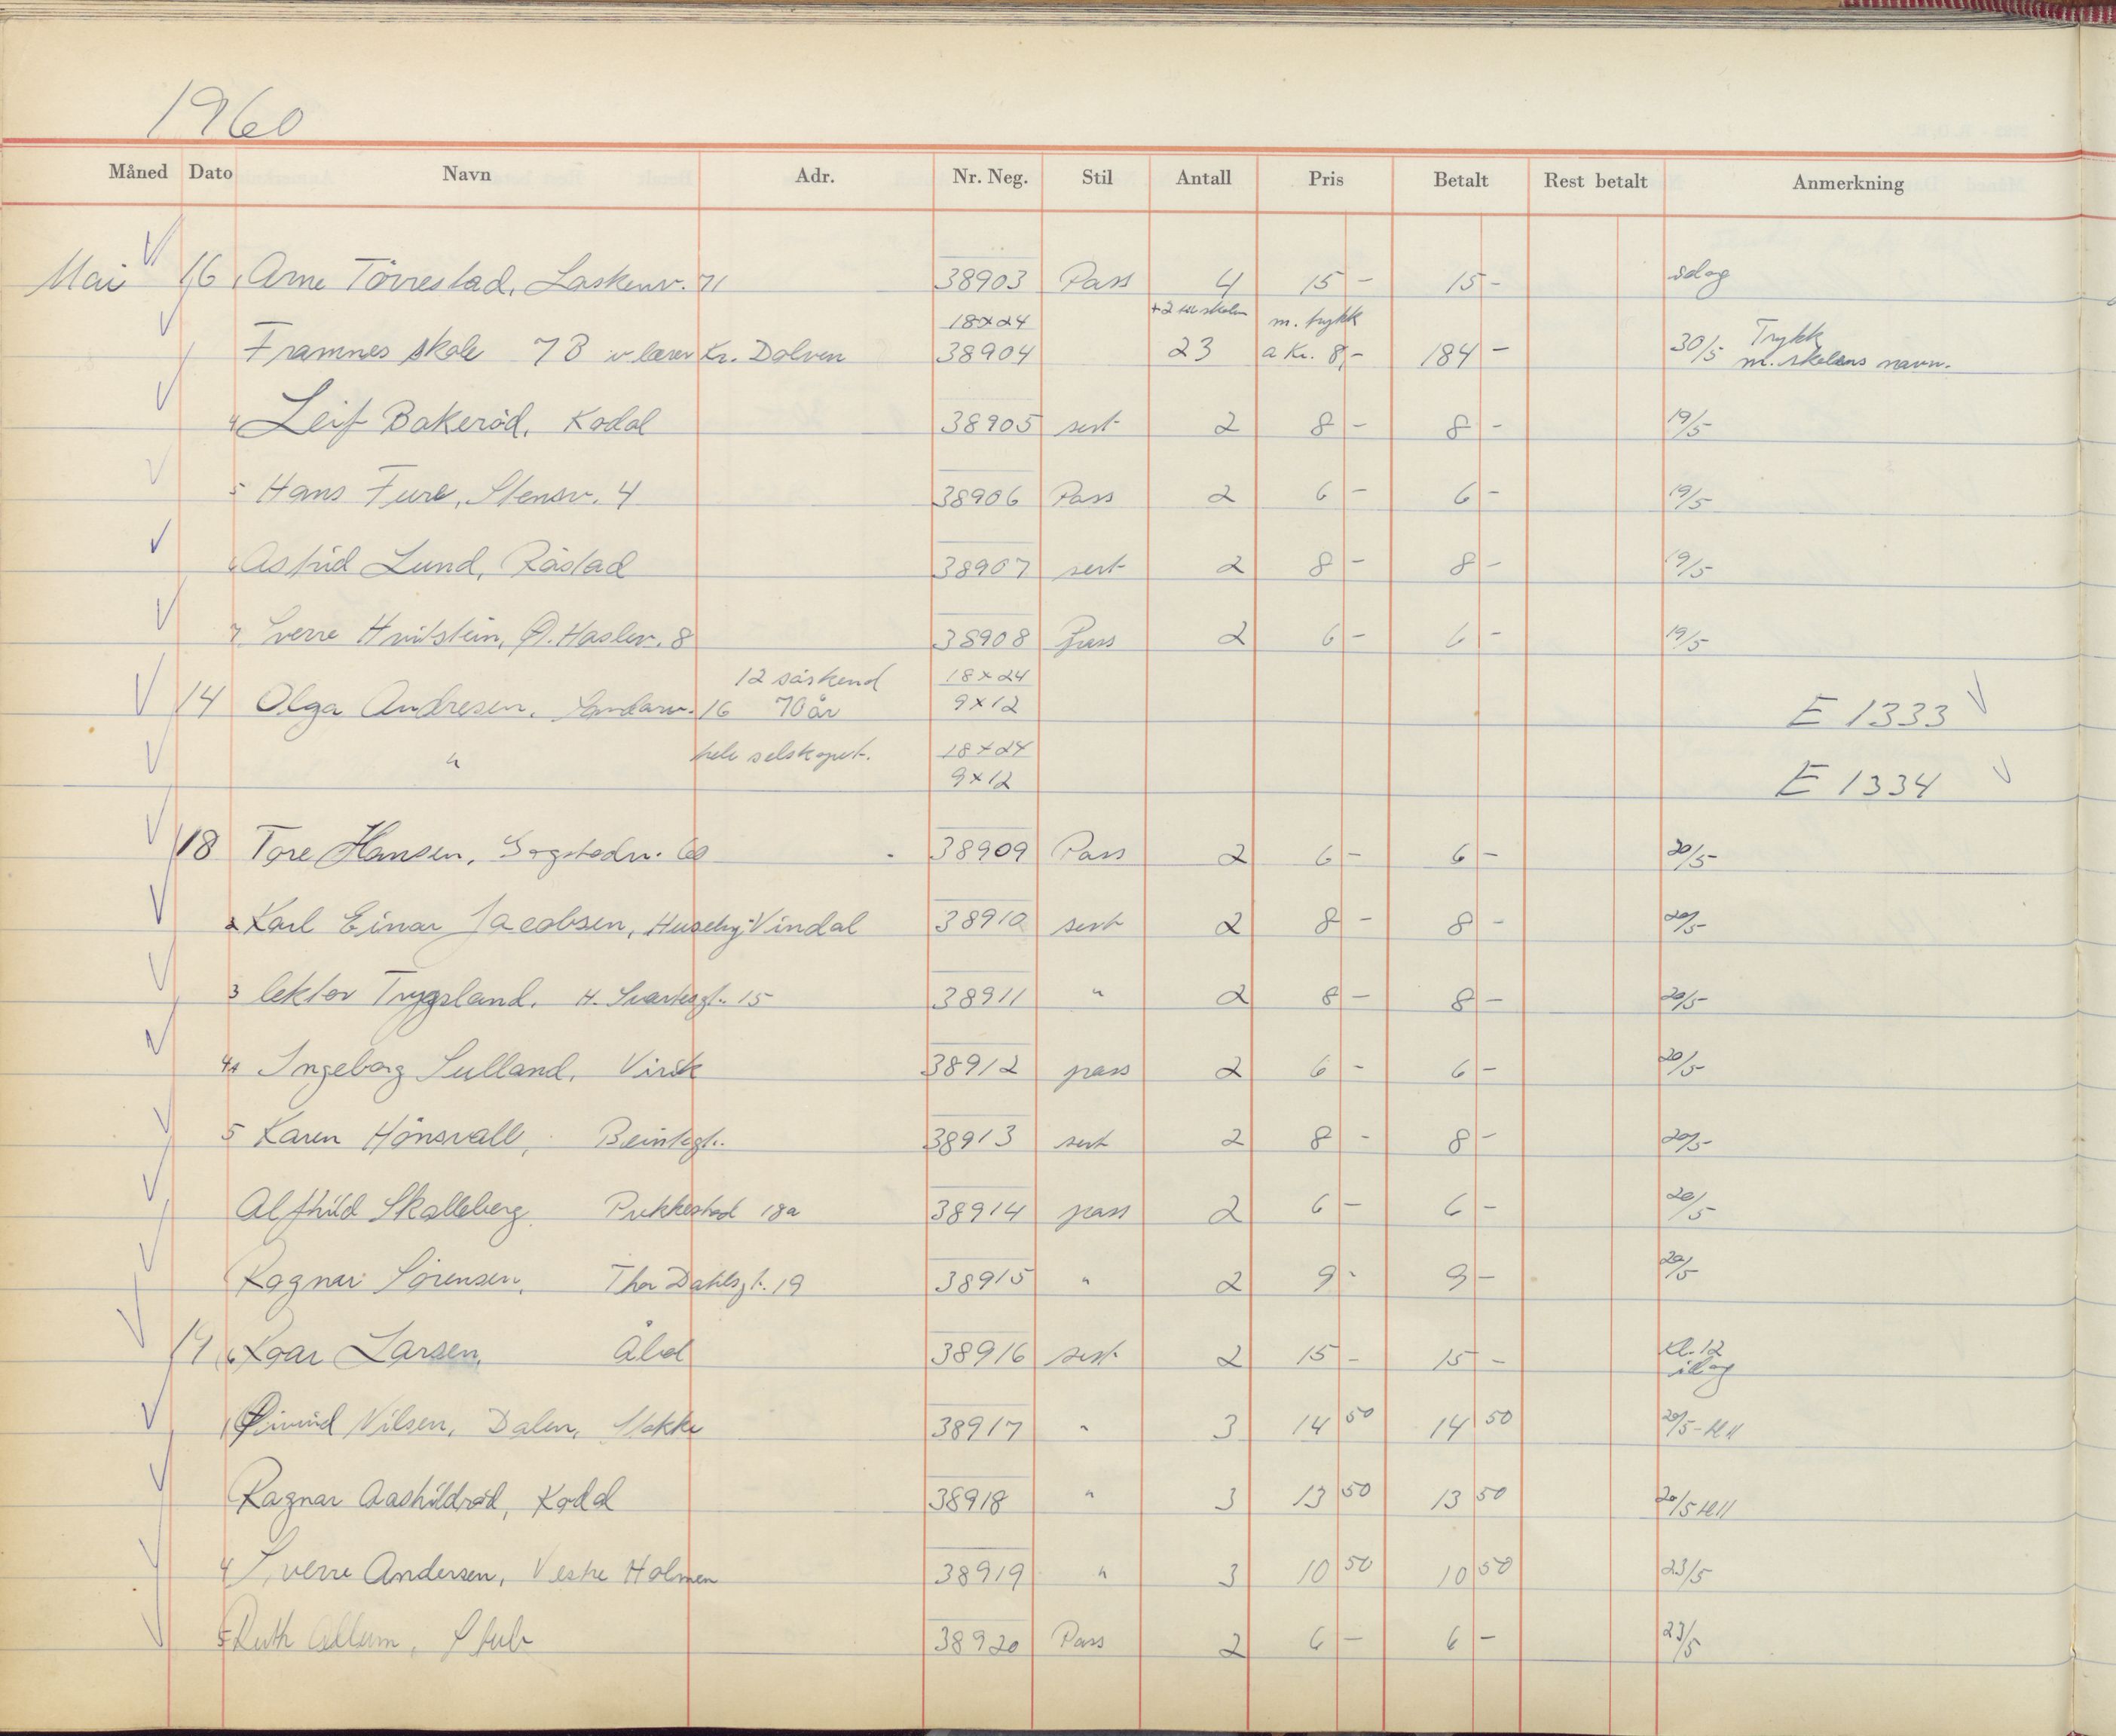 1960
Måned Dato Navn Adr. Nr. Neg. Stil Antall Pris Betalt Rest betalt Anmerkning
Mai 16 Arne Törrestad, 71 38903 Pass 4 15 - 15 - idag
18x24 +2 m. trykk
Framnes skole 7B v lærer Kr. Dolven 38904 23 a Kr. 8,- 184 - 30/5 Trykk m. skolens navn.
4 Leif Bakeröd, Kodal 38905 sert 2 8 - 8 - 19/5
5 Hans Fure, Stensv. 4 38906 Pass 2 6 - 6 - 19/5
6 Astrid Lund, Råstad 38907 sert 2 8 - 8 - 19/5
7 Sverre Hvitstein, Haslev. 8 38908 Pass 2 6 - 6 - 19/5
12 söskend 18x24
14 Olga Andresen, 16 70 år 9x12 E 1333
" hele selskapet. 18x24 9x12 E 1334
18 Tore Hansen, 60 38909 Pass 2 6 - 6 - 20/5
2 Karl Einar Jacobsen, Huseby-Vindal 38910 sert 2 8 - 8 - 20/5
3 lektor Trygsland, H. 15 38911 " 2 8 - 8 - 20/5
4 Ingeborg Sulland, Virik 38912 pass 2 6 - 6 - 20/5
5 Karen Hönsvall, 38913 sert 2 8 - 8 - 20/5
Alfhild Skalleberg, Pukkestad 18a 38914 pass 2 6 - 6 - 20/5
Ragnar Sörensen, Thor Dahlsgt. 19 38915 " 2 9 - 9 - 20/5
19 6 Roar Larsen, 38916 sert 2 15 - 15 - Kl. 12 idag
1 Öivind Nilsen, Dalen, Stokke 38917 " 3 14 50 14 50 20/5-kl 11
Ragnar Aashildröd, Kodal 38918 " 3 13 50 13 50 20/5 kl 11
4 Sverre Andersen, Vestre Holmen 38919 " 3 10 50 10 50 23/5
5 Ruth Allum, Stub 38920 Pass 2 6 - 6 - 23/5